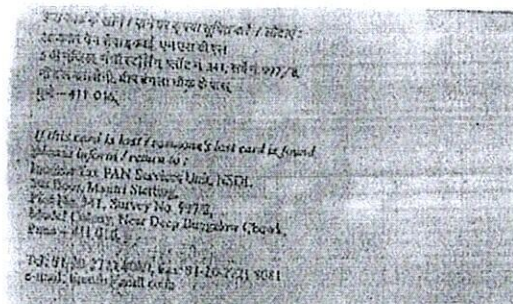 इस कार्ड के खोने / पाने पर कृपया सूचित करें / लौटाएं :
आयकर पैन सेवा इकाई, एन एस डी एल
5 वी मंजिल, मंत्री स्टर्लिंग, प्लॉट नं. 341, सर्वे नं. 997/8,
मॉडल कालोनी, दीप बंगला चौक के पास,
पुणे – 411 016.
If this card is lost / someone's lost card is found,
please inform / return to :
Income Tax PAN Services Unit, NSDL
5th floor, Mantri Sterling,
Plot No. 341, Survey No. 997/8,
Model Colony, Near Deep Bungalow Chowk,
Pune – 411 016.
Tel: 91-20-2721 8080, Fax: 91-20-2721 8081
e-mail: